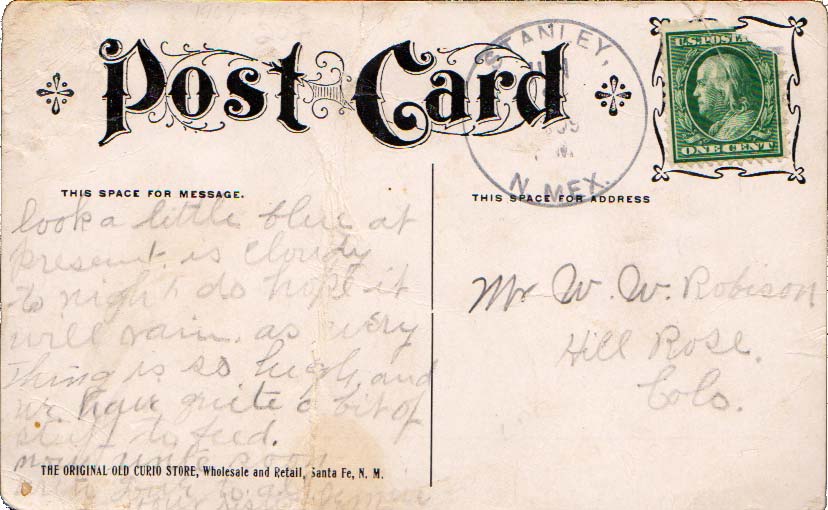 Post Card
STANLEY,
N. MEX.
U.S. POSTA
ONE CENT
THIS SPACE FOR MESSAGE.
THIS SPACE FOR ADDRESS
look a little blue at
present. is cloudy
to night do hope it
will rain. as every
thing is so high, and
we have quite a bit of
stuff to feed.
now write soon
THE ORIGINAL OLD CURIO STORE, Wholesale and Retail, Santa Fe, N. M.
Mr W. W. Robison
Hill Rose.
Colo.